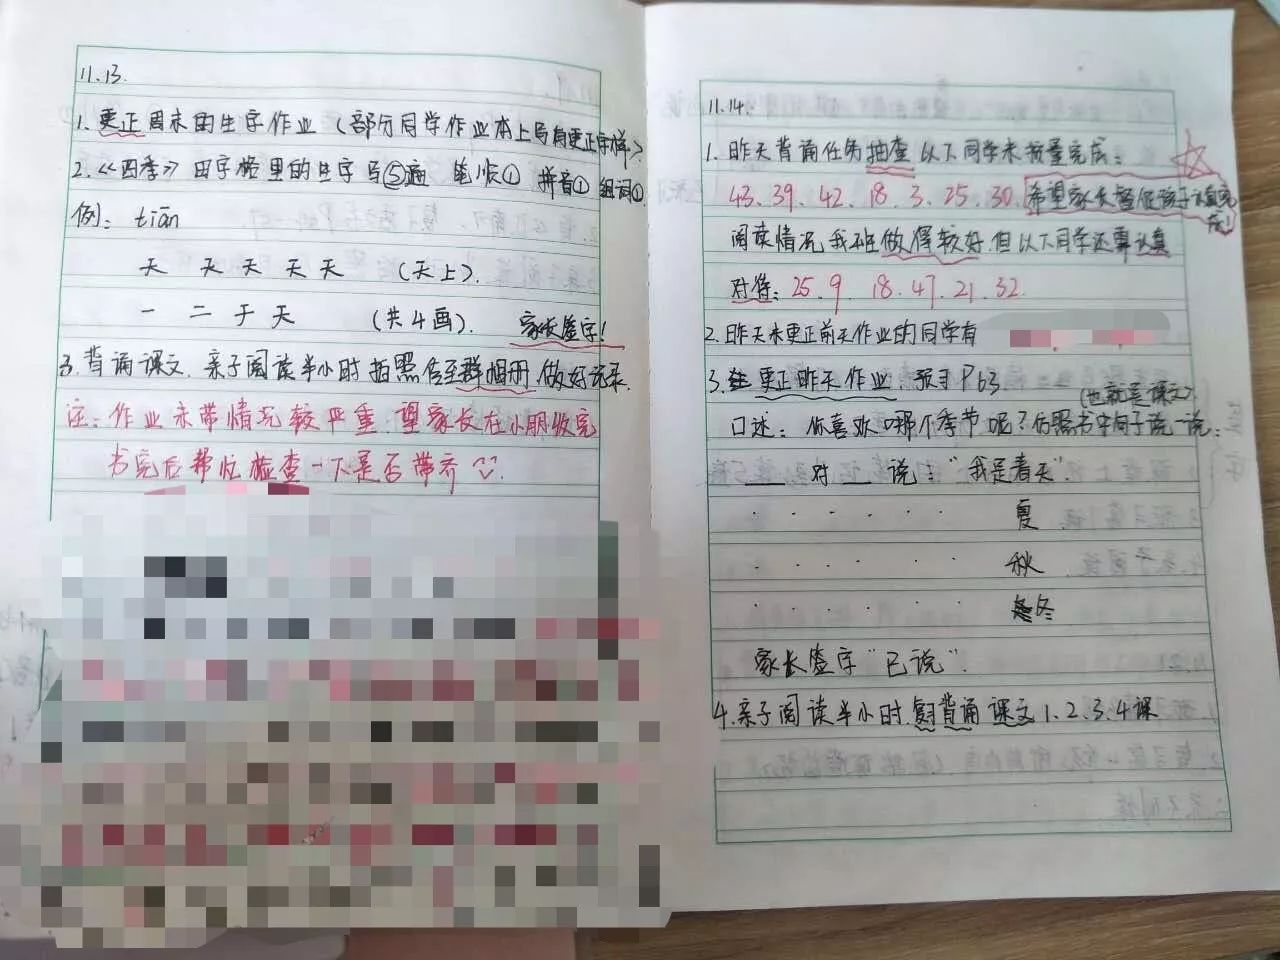 11.13.
1. 更正周末的生字作业（部分同学作业本上写有更正字样）
2.《四季》田字格里的生字写⑤遍 笔顺① 拼音① 组词①
例：tiān
天 天 天 天 天 （天上）.
一 二 于 天 （共4画）. 家长签字!
3. 背诵课文. 亲子阅读半小时 拍照传至群相册 做好记录.
注：作业未带情况较严重. 望家长在小朋收完
书完后帮忙检查一下是否带齐
11.14.
1. 昨天背诵任务抽查 以下同学未按量完成：
43. 39. 42. 18. 3. 25. 30. 希望家长督促孩子认真完
成!
阅读情况我班做得较好. 但以下同学还需认真
对待：25. 9. 18. 47. 21. 32.
2. 昨天未更正前天作业的同学有
3. 更正昨天作业. 预习 P63
(也就是课文)
口述：你喜欢哪个季节呢？仿照书中句子说一说：
___对___说："我是春天".
· · · · · · 夏
· · · · · · 秋
· · · · · · 冬
家长签字"已说".
4. 亲子阅读半小时. 复背诵 课文1.2.3.4课